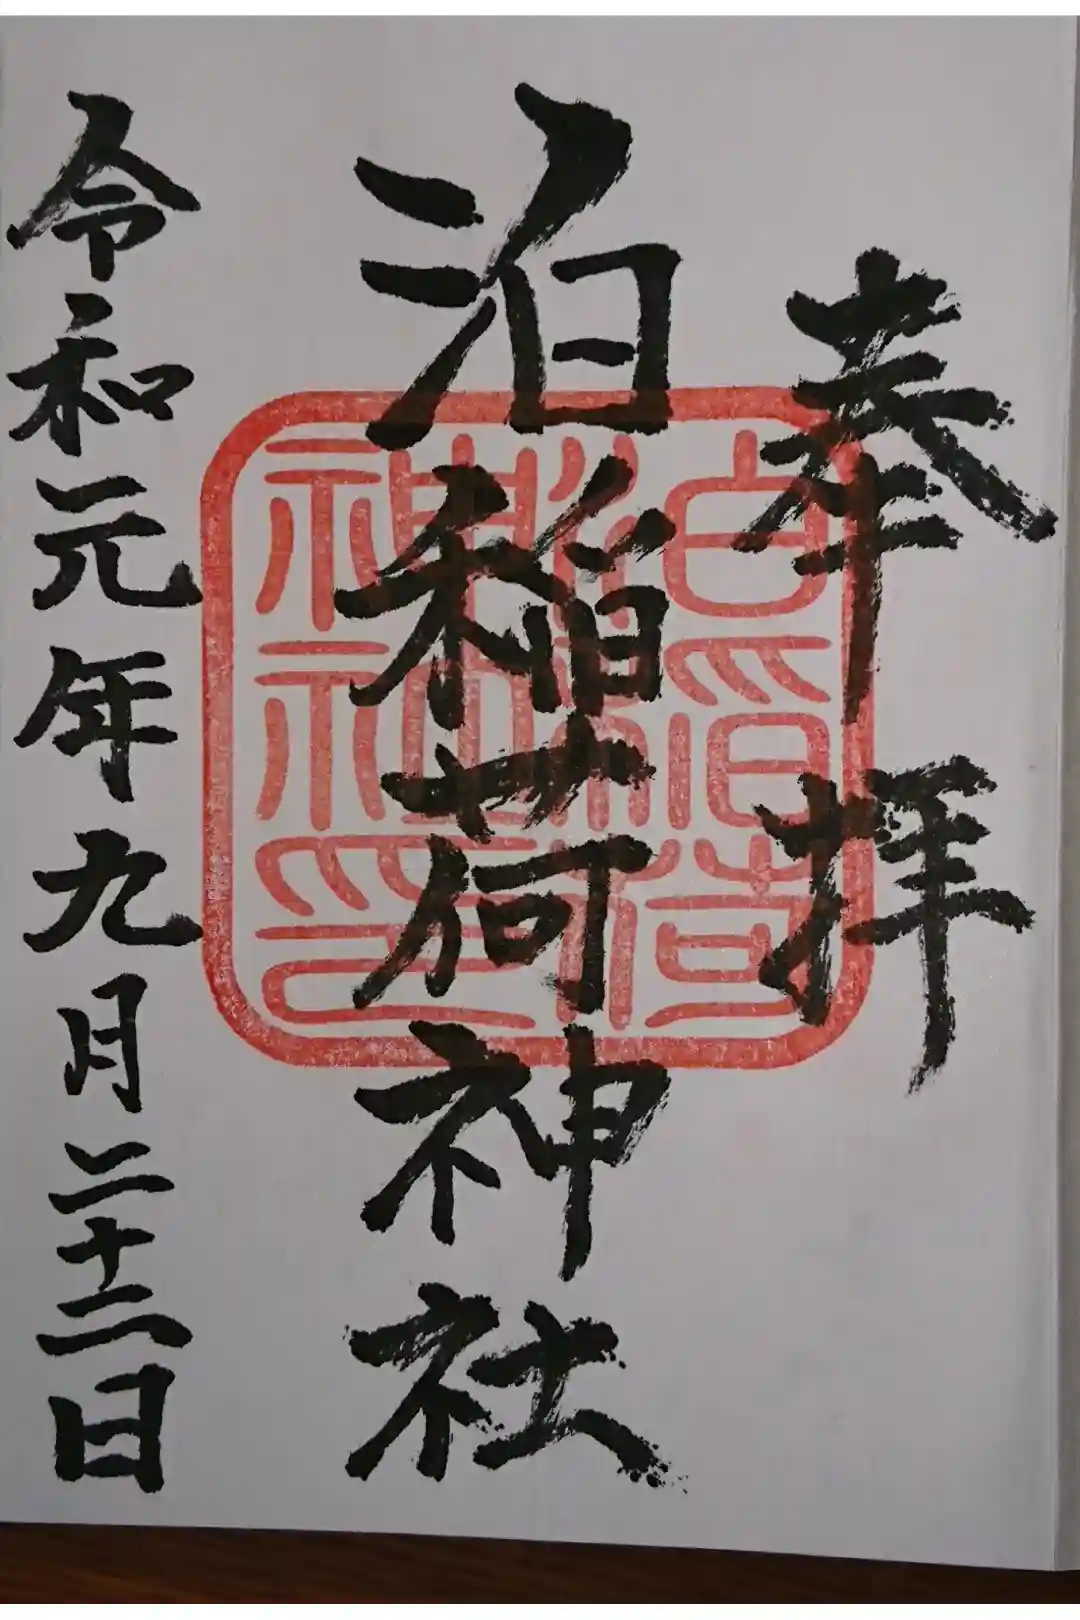 奉拝
泊稲荷神社
泊稲荷神社印
令和元年九月二十二日